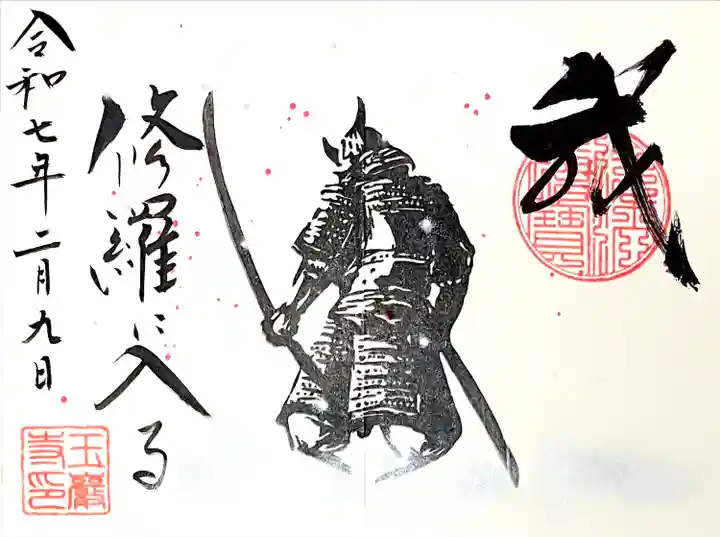 武
修羅に入る
令和七年二月九日
玉巌
寺印